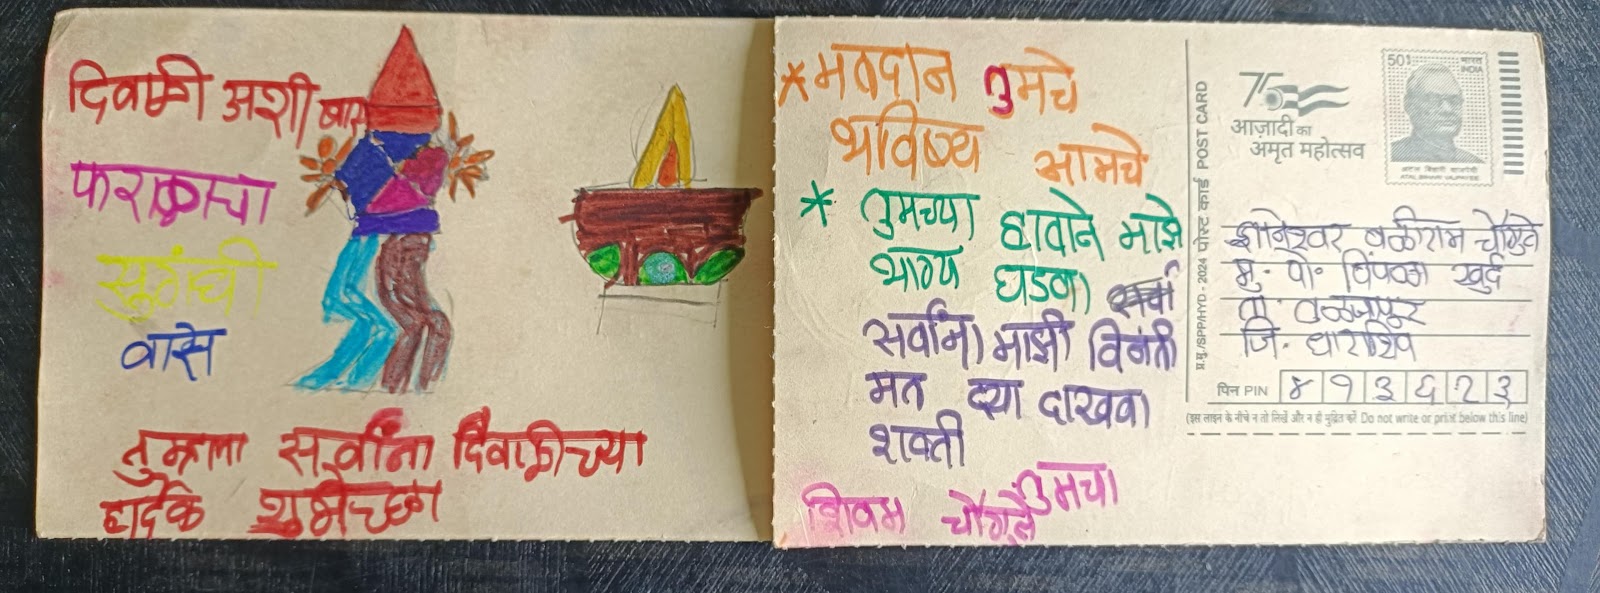 दिवाळी अशी खास
फराळाचा
सुगंधी
वास
तुम्हाला सर्वांना दिवाळीच्या
हार्दिक शुभेच्छा
*मतदान तुमचे
भविष्य आमचे
* तुमच्या हावाने माझे
भाग्य घडवा
सर्वांना माझी विनंती
मत द्या दाखवा
शक्ती
तुमचा
शिवम चौगुले
प्र.मु./SPP/HYD - 2024 पोस्ट कार्ड POST CARD
75
आज़ादी का
अमृत महोत्सव
501 भारत
INDIA
अटल बिहारी वाजपेयी
ATAL BIHARI VAJPAYEE
ज्ञानेश्वर बळीराम चौगुले
मु. पो. पिंपळा खुर्द
ता. तुळजापूर
जि. धाराशिव
पिन PIN ४१३६२३
(इस लाइन के नीचे न तो लिखें और न ही मुद्रित करें Do not write or print below this line)